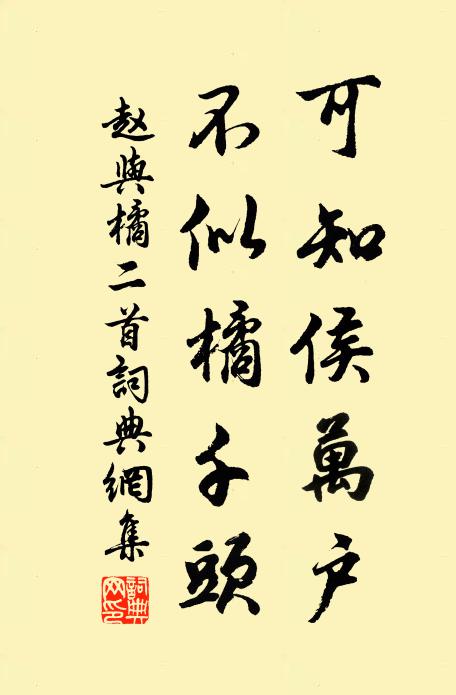 可知侯萬户
不似橘千頭
赵與橘二首詞典網集
詞典網印